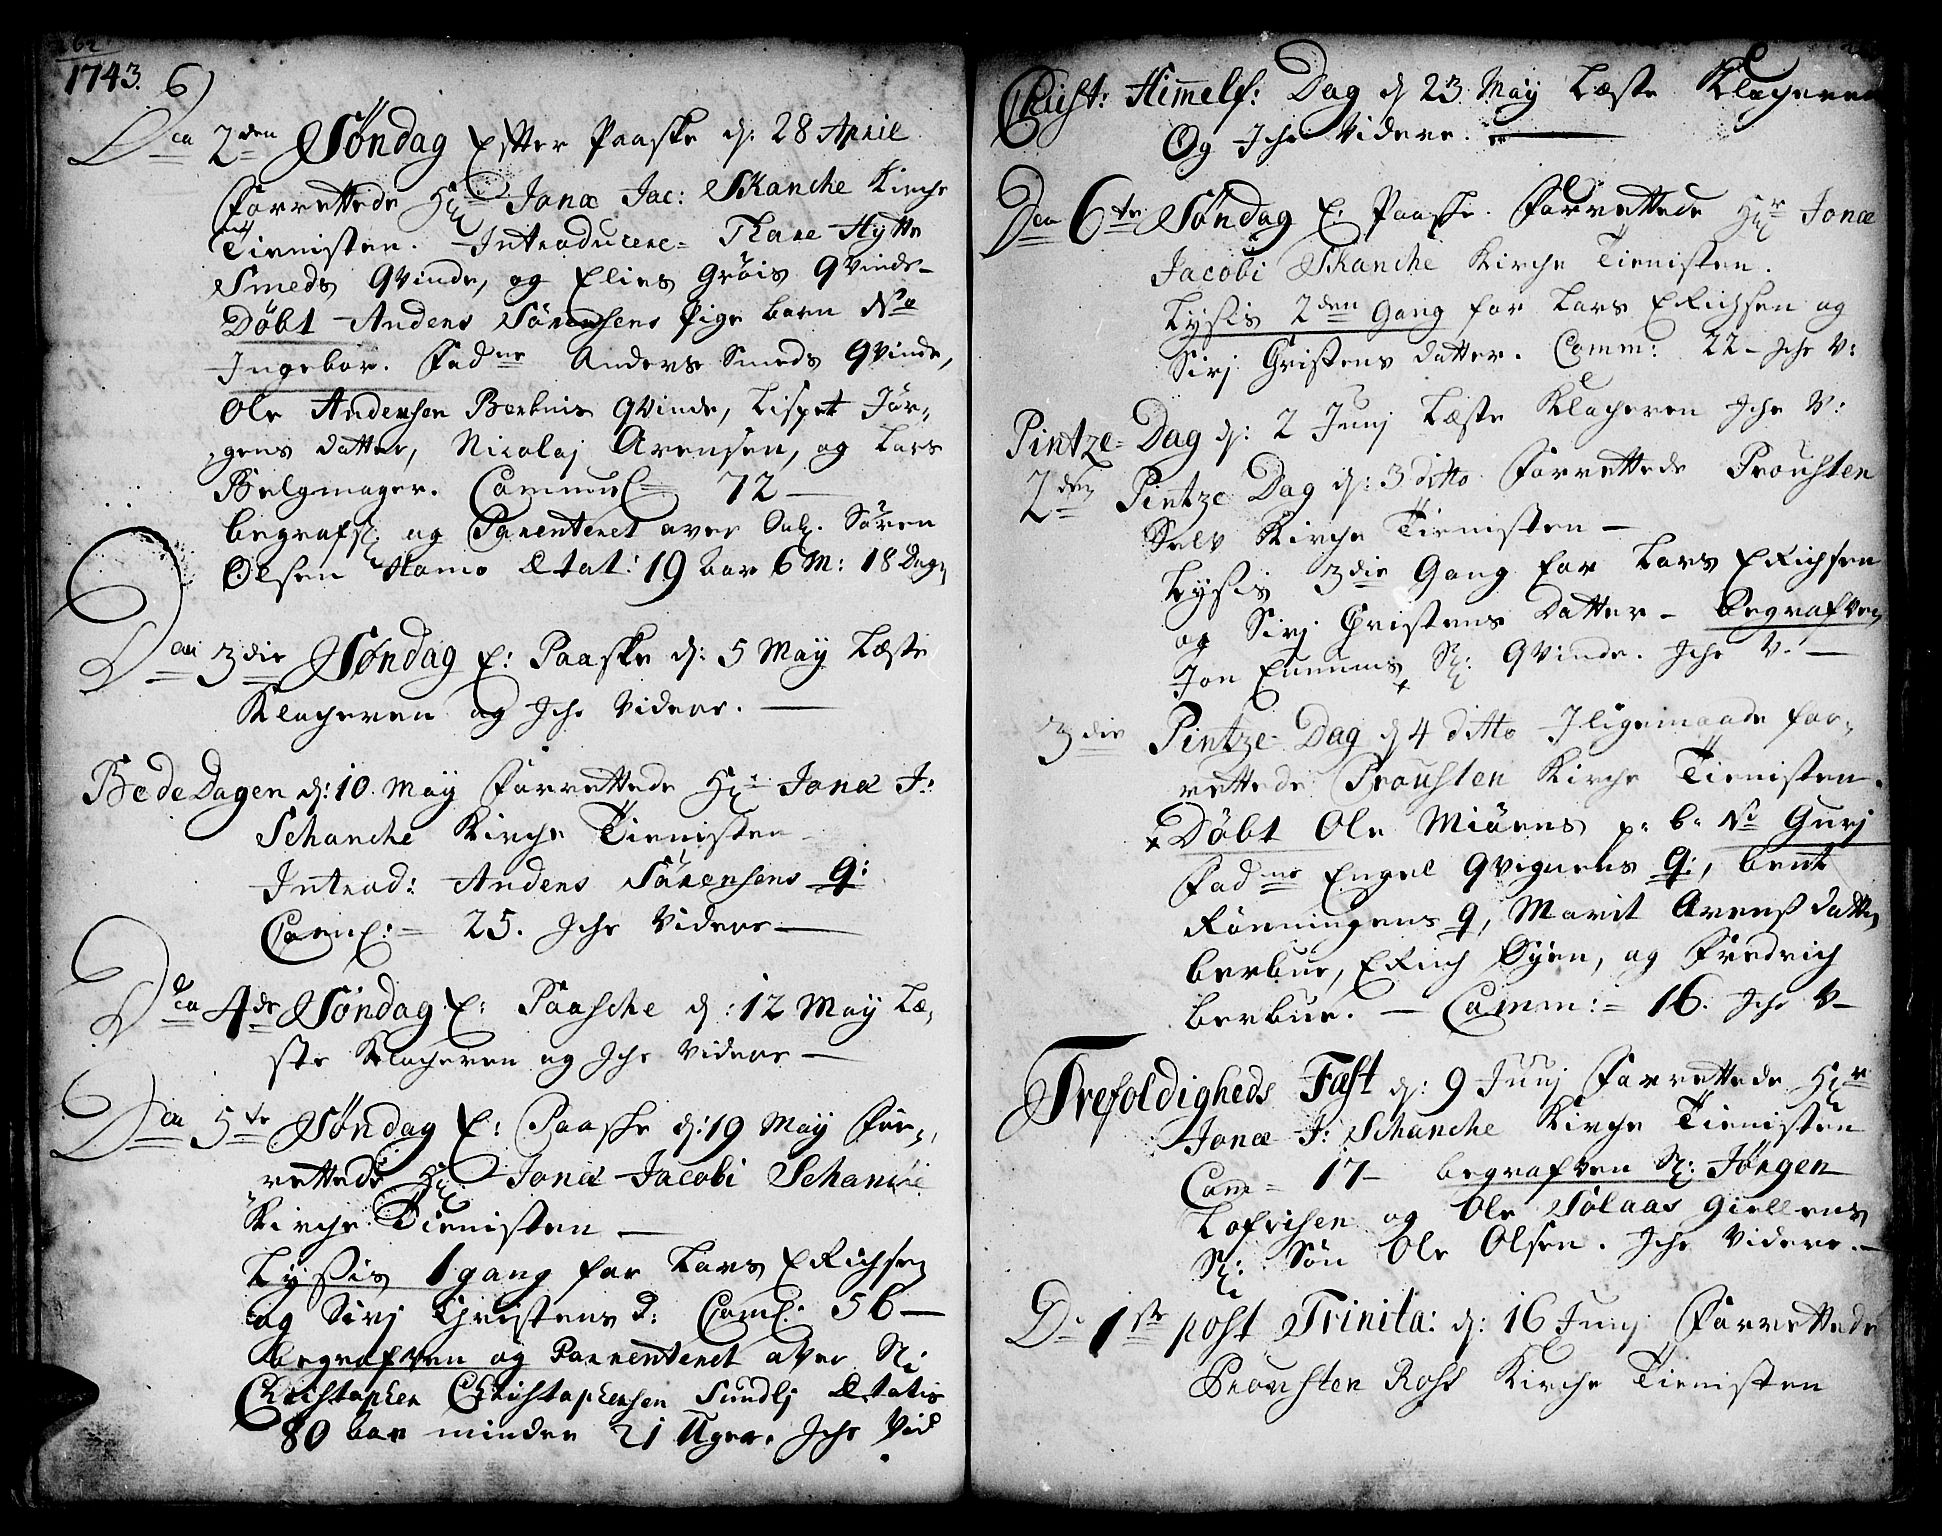 262
1743. 6)
Den 2den Søndag Efter Paaske d: 28 April
Forrettede Hr: Jonæ Jac: Skanche Kirche
Tienisten. Introducere= Thore Hytte
Smeds Qvinde, og Elies Grøis Qvinde-
Døbt Anders Sörensens Pige barn No
Ingebor. Fadne Anders Smeds Qvinde,
Ole Andersen Berbuis Qvinde, Lispet Jör-
gens datter, Nicolaj Arensen, og Lars
Belgmager. Commul= 72 —
begrafv: og Parenteret over Sal. Sören
Olsen Homo Ætat: 19 aar 6 M: 18 Dage
Den 3die Søndag E: Paaske d: 5 May Læste
Klocheren og Iche Videre. —
BedeDagen d: 10. May Forrettede Hr: Jonæ J:
Schanche Kirche Tienisten
Introd: Anders Sörensens Q:
Comul: = 25. Iche Videre —
Den 4de Søndag E: Paasche d: 12 May Læ-
ste Klocheren og Iche Videre —
Den 5te Søndag E: Paasche d: 19 May For-
rettede Hr Jonæ Jacobi Schanche
Kirche Tienisten —
Lyßis 1 gang for Lars ERichsen
og Sirj Christens D: Coml: 56 —
begrafven og Parenteret over Sl:
Christopher Christophersen Sundlj Ætatis
80 aar minder 21 Uger. Iche Vid
Christ: Himmelf: Dag d 23 May Læste Klocheren
Og Iche Videre. —
Den 6te Søndag E. Paasche. Forrettede Hr Jonæ
Jacobi Skanche Kirche Tienisten.
Lyßis 2den Gang for Lars ERichsen og
Sirj Christens datter. Comm: 22 — Iche V:
Pintze= Dag d: 2 Junj Læste Klocheren Iche V:
2den Pintze Dag d: 3 ditto Forrettede Prousten
Selv Kirche Tienisten —
Lyßis 3die Gang for Lars ERichsen
og Sirj Christens Datter — Begrafven
Jon Sl: Qvinde. Iche V. —
3die Pintze Dag d 4 ditto Iligemaade for-
rettede Prousten Kirche Tienisten.
x Døbt Ole Miöens p: b: No Gurj
Fadne Engel Qvignens Q:, bent
Rönningens Q, Marit Arenß datter
berbue, ERich Öyen, og Fredrich
berbue. — Comm: = 16. Iche V —
Trefoldigheds Fæst d: 9 Junj Forrettede Hr
Jonæ J: Schanche Kirche Tienisten
Com = 17 — begrafven Sl: Jörgen
Lofrisen og Ole Solaas giellens
Sl: Sön Ole Olsen. Iche Videre. —
D. 1ste post Trinita: d: 16 Junj Forrettede
Prousten Kirche Tienisten